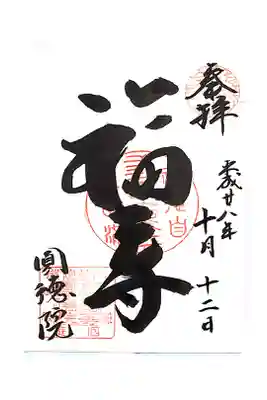 奉拝
平成廿八年
十月十二日
福寿
圓徳院